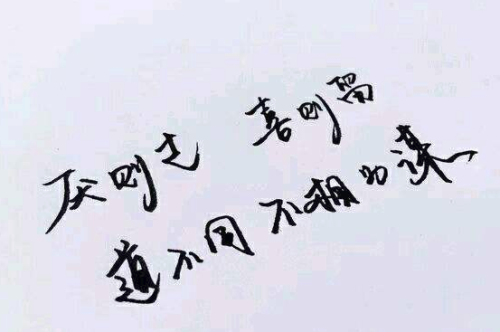 厌则走 喜则留
道不同 不相为谋